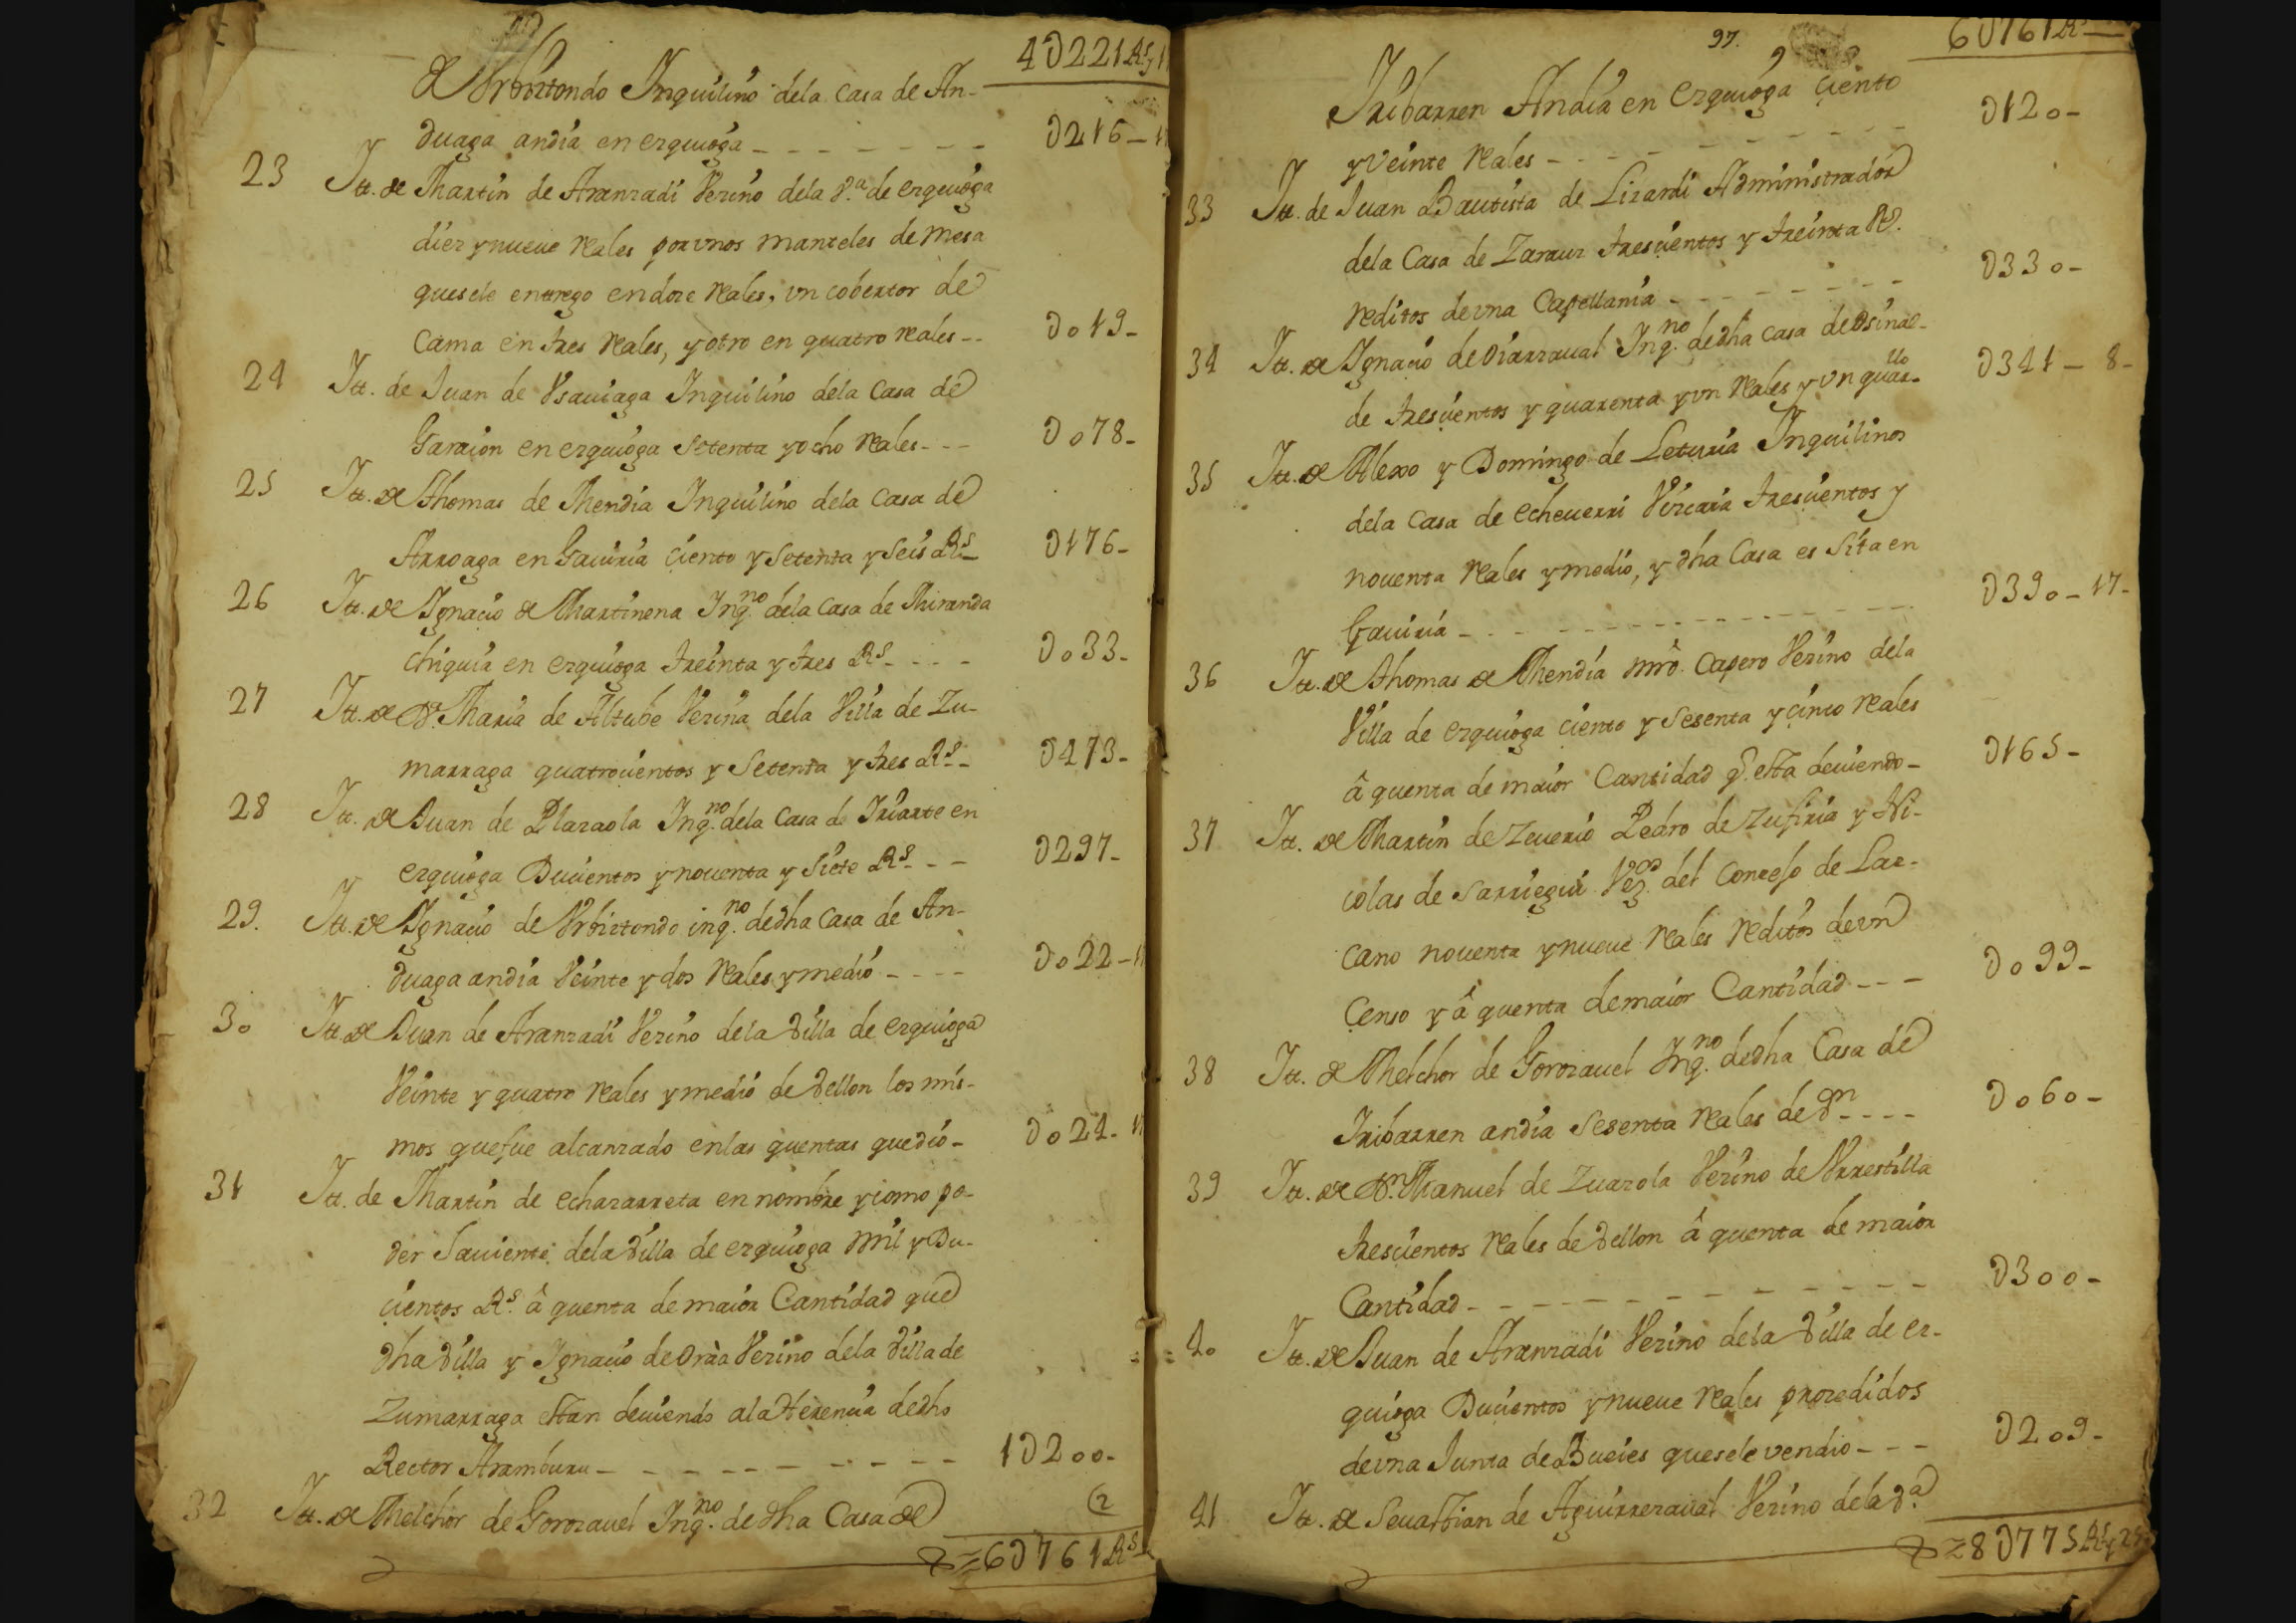 4U221 Rs y 1
de Vrbiztondo Inquilino dela Casa de An-
duaga andia en ezquioga - - - - - - - U216 - 1
23 Itt. de Martin de Aranzadi Vezino dela Va. de ezquioga
diez y nueue Reales por vnos manteles de mesa
que sele entrego en doze Reales, vn cobertor de
Cama en tres Reales, y otro en quatro reales - - U019 -
24 Itt. de Juan de Vsauiaga Inquilino dela Casa de
Garaion en ezquioga Setenta y ocho Reales - - - U078 -
25 Itt. de Thomas de Mendia Inquilino dela Casa de
Arroaga en Gauiria Ciento y Setenta y Seis Rs. U176 -
26 Itt. de Ignacio de Martinena Inqno. dela Casa de Miranda
Chiquia en ezquioga treinta y tres Rs. - - - U033 -
27 Itt. de Da. Maria de Altube Vezina dela Villa de Zu-
marraga quatrocientos y Setenta y tres Rs. U473 -
28 Itt. de Juan de Plazaola Inqno. dela Casa de Iriarte en
ezquioga Ducientos y nouenta y Siete Rs. - - U297 -
29. Itt. de Ignacio de Vrbiztondo inqno. dedha Casa de An-
duaga andia Veinte y dos Reales y medio - - - - U022 - 1
30 Itt. de Juan de Aranzadi Vezino dela Villa de ezquioga
Veinte y quatro Reales y medio de Vellon los mis-
mos que fue alcanzado enlas quentas que dio - U024 - 1
31 Itt. de Martin de echazarreta en nombre y como po-
der Hauiente dela Villa de ezquioga Mil y Du-
cientos Rs. â quenta de maior Cantidad que
dha Villa y Ignacio de Oràa Vezino dela Villa de
Zumarraga estan deuiendo ala Herencia dedho
Rector Aramburu - - - - - - - - - - 1U200 -
32 Itt. de Melchor de Gorozauel Inqno. de dha Casa de
6U761 Rs
97.
6U761 Rs
Iribarren Andia en ezquioga Ciento
y Veinte Reales - - - - - - - - U120 -
33 Itt. de Juan Bautista de Lizardi Administrador
dela Casa de Zarauz trescientos y treinta Rs.
Reditos de vna Capellania - - - - - - - U330 -
34 Itt. de Ignacio de Oiarzaual Inqno. dedha Casa de Osinal-
de trescientos y quarenta y vn Reales y vn quarllo U341 - 8 -
35 Itt. de Alexo y Domingo de Leturia Inquilinos
dela Casa de echeuerri Vizcaia trescientos y
nouenta Reales y medio, y dha Casa es Sita en
Gauiria - - - - - - - - - - - - - U390 - 17 -
36 Itt. de Thomas de Mendia mrô. Capero Vezino dela
Villa de ezquioga Ciento y Sesenta y cinco Reales
â quenta de maior Cantidad q. esta deuiendo - U165 -
37 Itt. de Martin de Zauerio Pedro de Zufiria y Ni-
colas de Sarriegui Vezos. del Concejo de Laz-
cano nouenta y nueue Reales Reditos de vn
Censo y â quenta de maior Cantidad - - - U099 -
38 Itt. de Melchor de Gorozauel Inqno. dedha Casa de
Iribarren andia Sesenta Reales de Vn. - - - - U060 -
39 Itt. de Dn. Manuel de Zuazola Vezino de Vrrestilla
trescientos Reales de Vellon â quenta de maior
Cantidad - - - - - - - - - - - U300 -
40 Itt. de Juan de Aranzadi Vezino dela Villa de ez-
quioga Ducientos y nueue Reales procedidos
de vna Junta de Bueies que sele vendio - - - U209 -
41 Itt. de Seuastian de Aguirrezaual Vezino dela Va.
8U775 Rs y 25